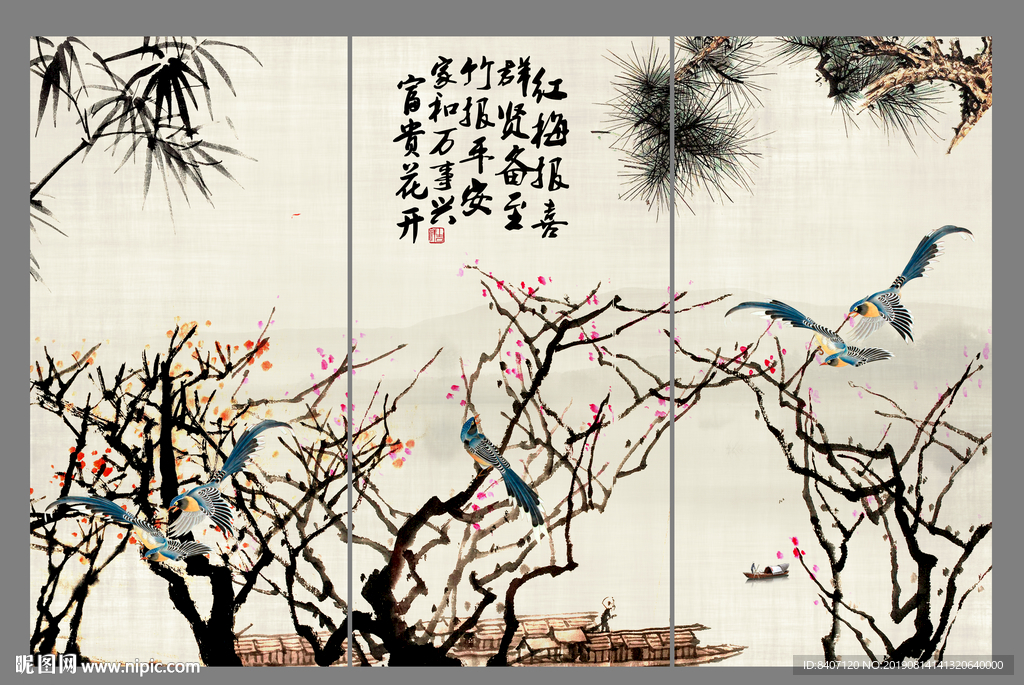 红梅报喜
群贤备至
竹报平安
家和万事兴
富贵花开
昵图网 www.nipic.com
ID:8407120 NO:20190814141320640000